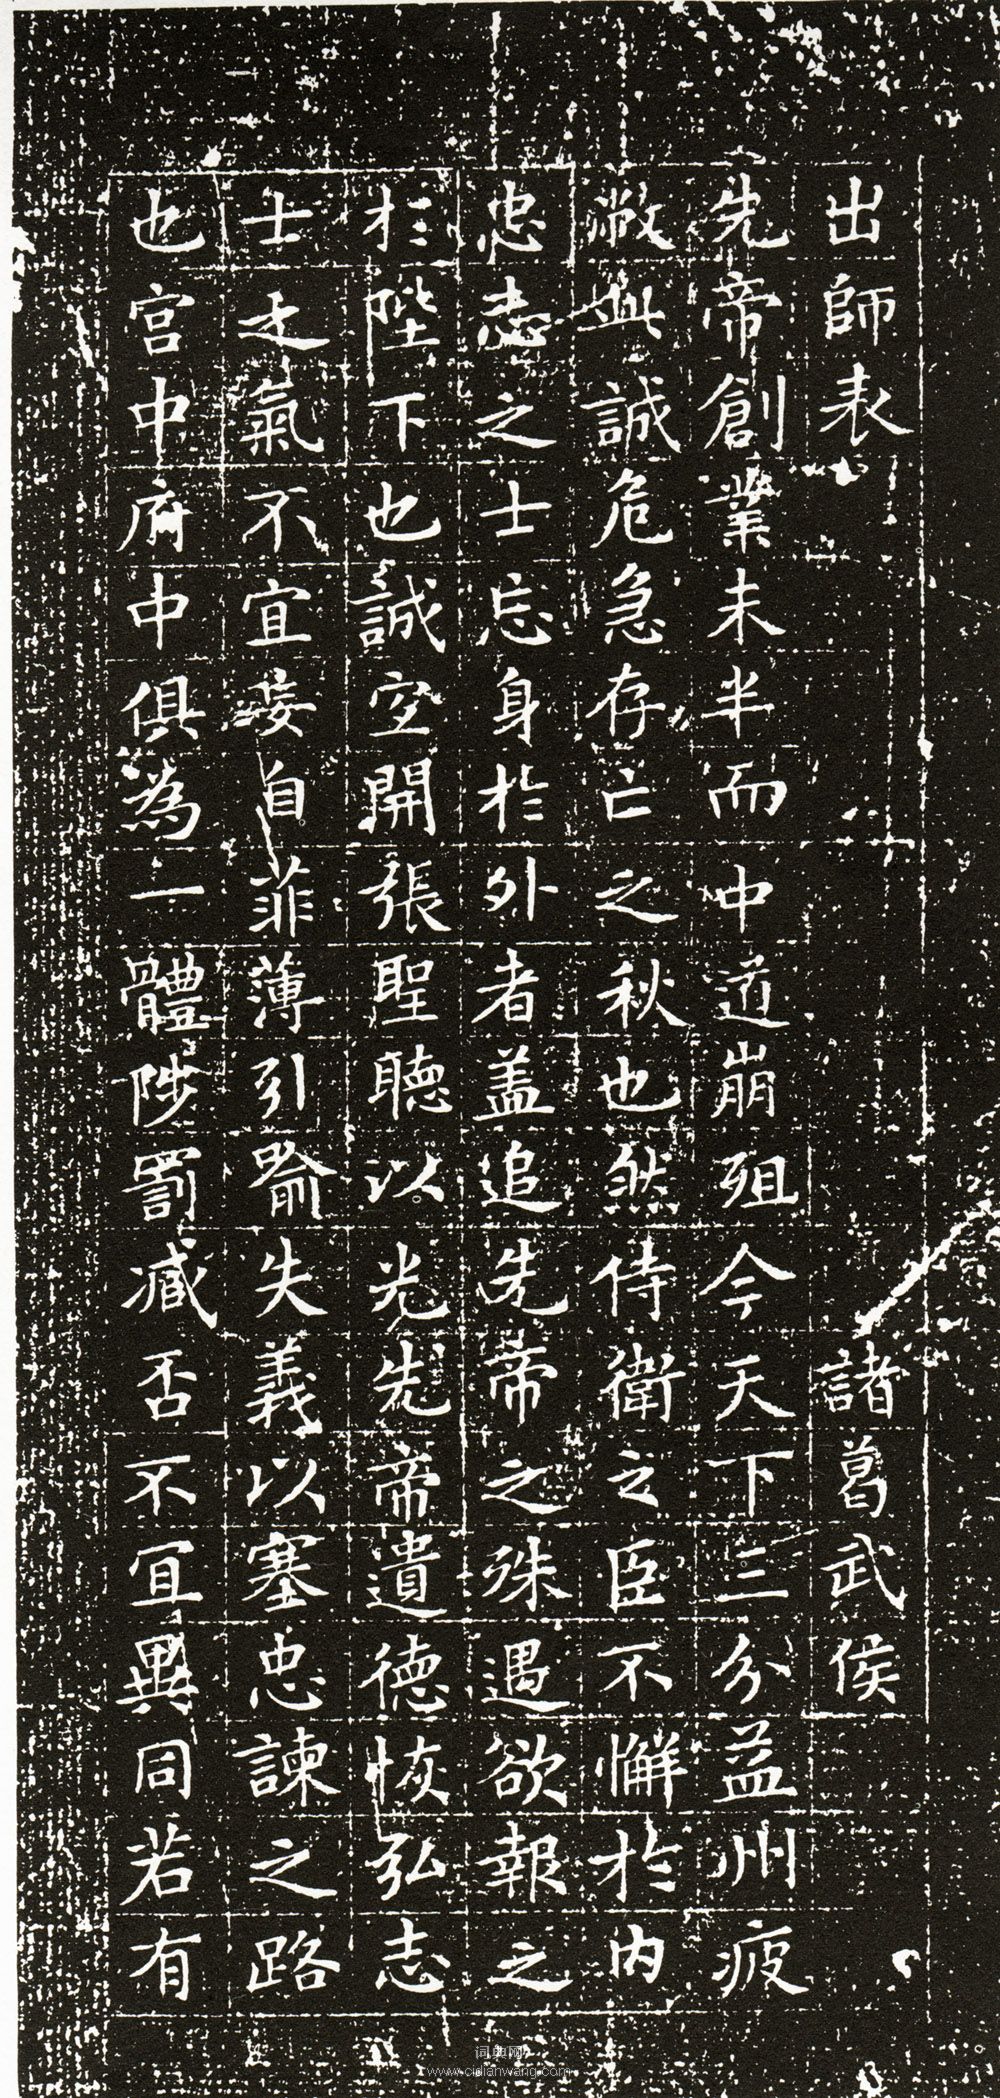 出師表　諸葛武侯
先帝創業未半而中道崩殂今天下三分益州疲
敝此誠危急存亡之秋也然侍衛之臣不懈於内
忠志之士忘身於外者蓋追先帝之殊遇欲報之
於陛下也誠宜開張聖聽以光先帝遺德恢弘志
士之氣不宜妄自菲薄引喻失義以塞忠諫之路
也宮中府中俱為一體陟罰臧否不宜異同若有
词典网
www.cidianwang.com